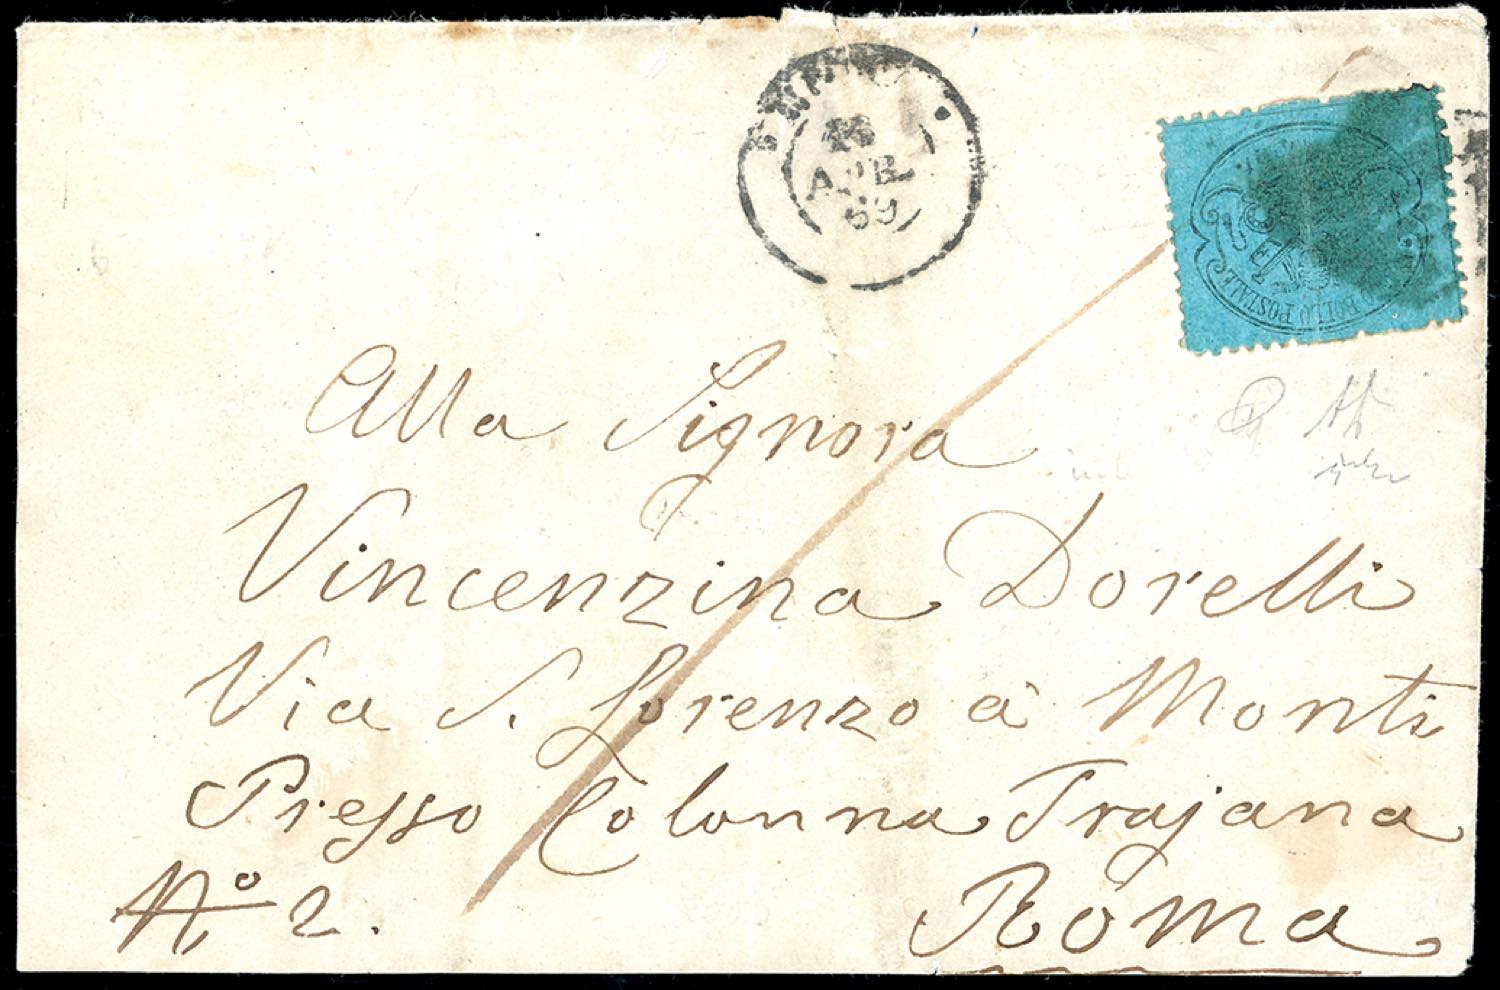 APR
69
BOLLO POSTALE
Alla Signora
Vincenzina Dorelli
Via S. Lorenzo à Monti
Presso Colonna Trajana
No 2.
Roma